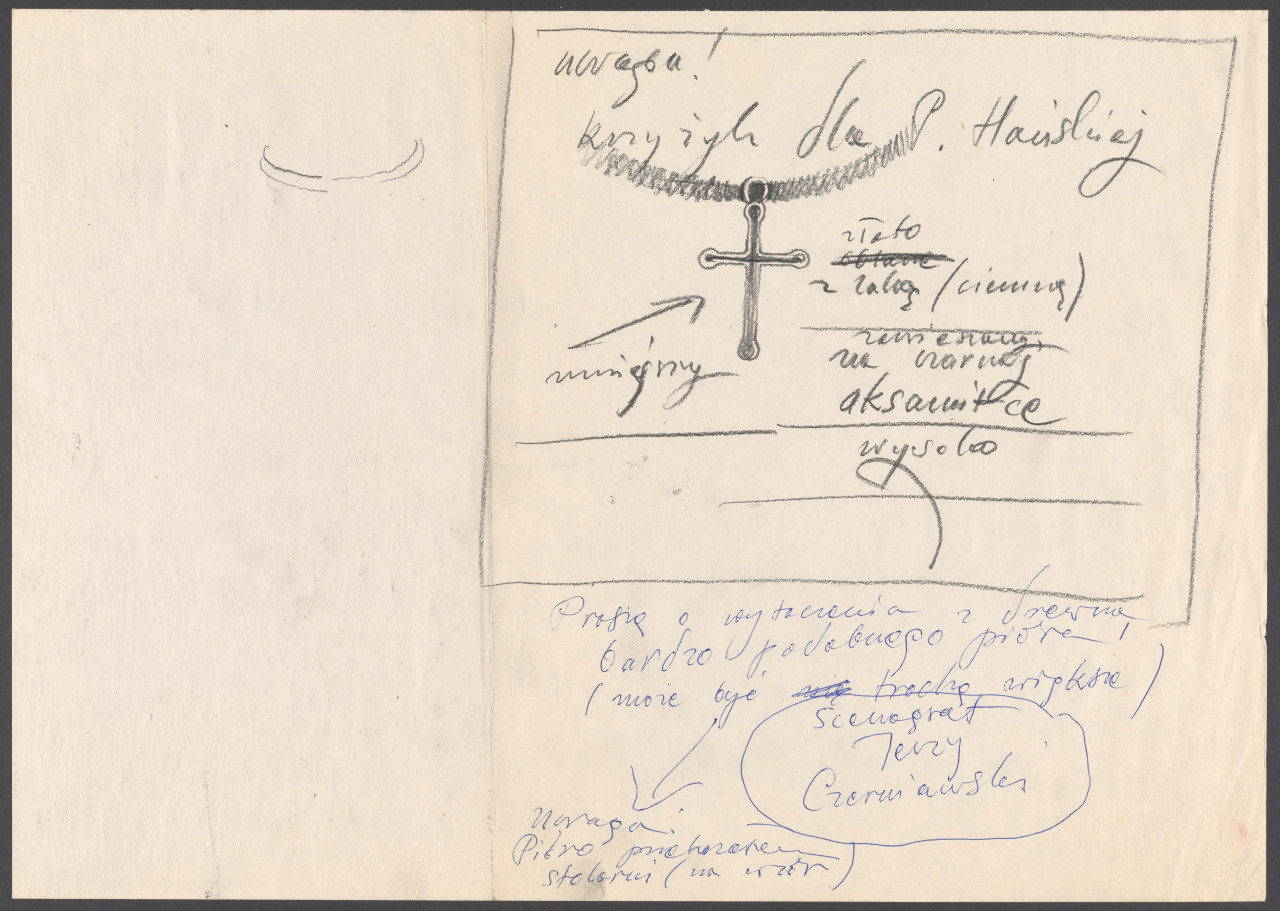 uwaga!
krzyżyk dla P. Hańskiej
złoto
z
(ciemną)
zawieszony
na czarnej
aksamitce
mniejszy
wysoko
Proszę o wytoczenie z drewna
bardzo podobnego pióra!
(może być trochę większe)
Scenograf
Jerzy
Czerniawski
Uwaga!
Pióro przekazałem
stolarni (na wzór)